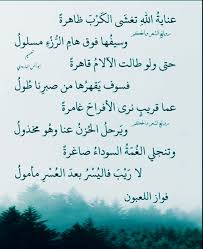 عنايةُ اللهِ تغشَى الكَرْبَ ظاهرةً
وسيفُها فوق هامِ الرُّزْءِ مسلولُ
حتى ولو طالت الآلامُ قاهرةً
فسوف يَقهرُها من صبرِنا طُولُ
عما قريبٍ نرى الأفراحَ غامرةً
ويرحلُ الحُزنُ عنا وهو مخذولُ
وتنجلي الغُمَّةُ السوداءُ صاغرةً
لا رَيْبَ فاليُسْرُ بعدَ العُسْرِ مأمولُ
فواز اللعبون